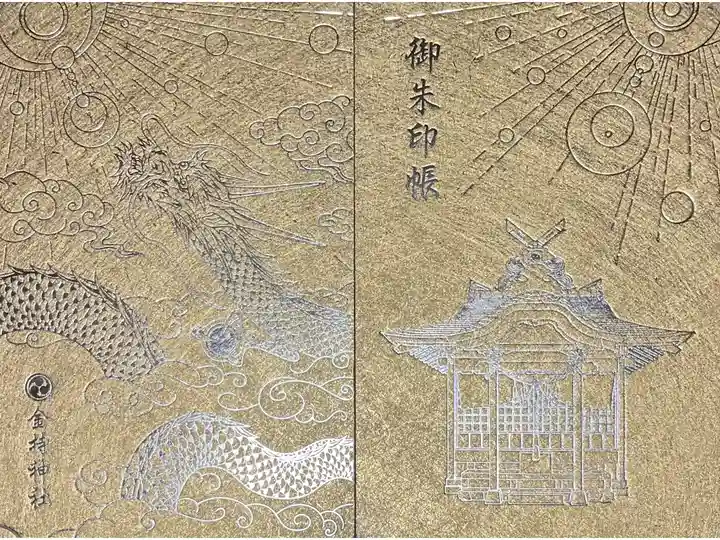 御朱印帳
金持神社